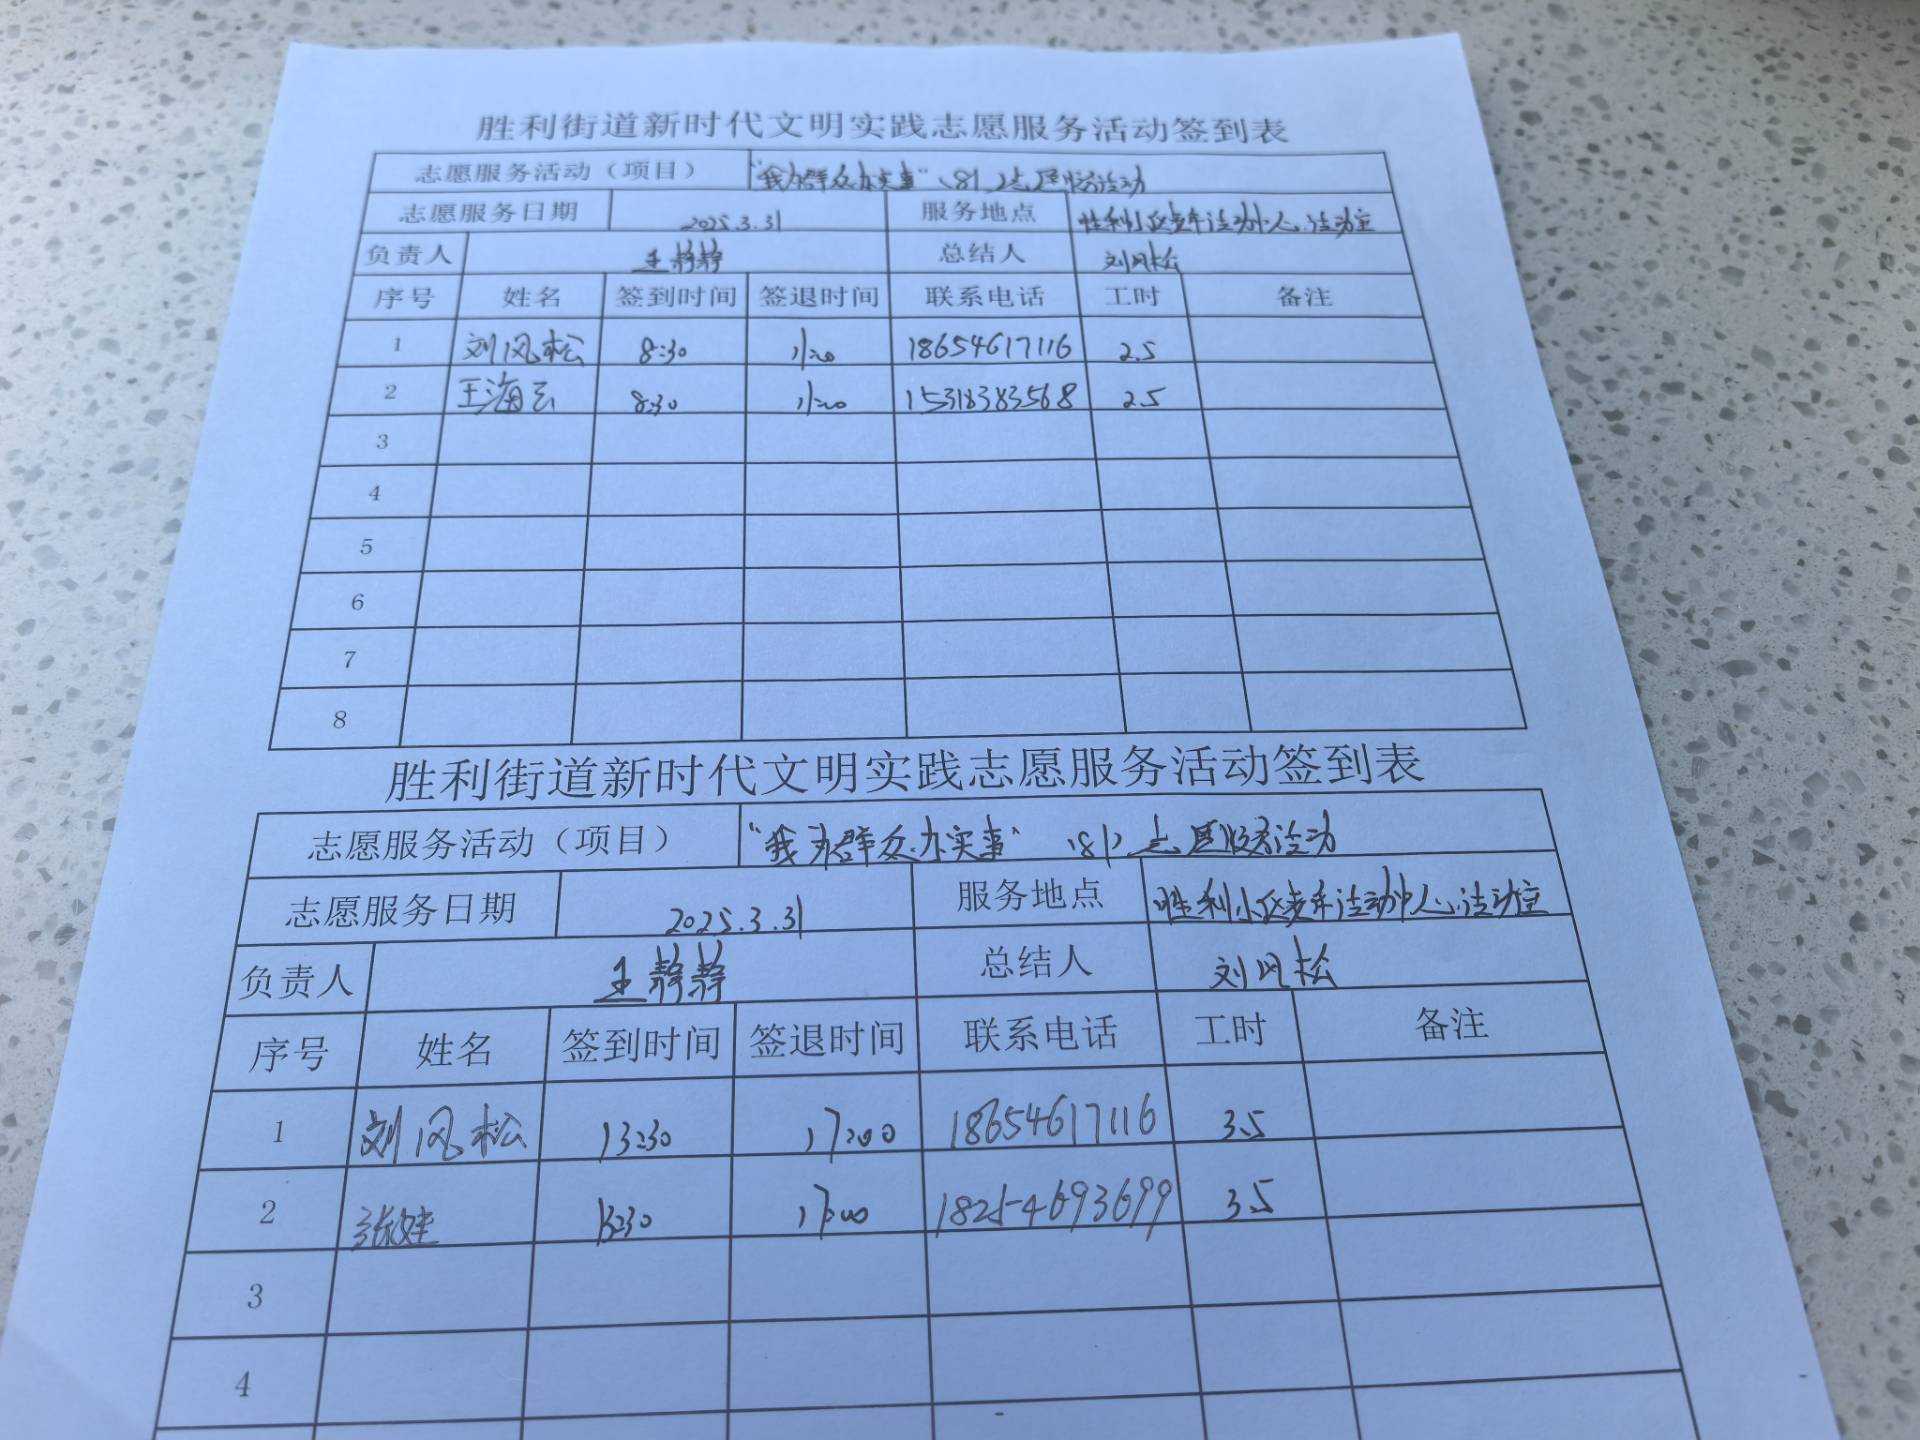 胜利街道新时代文明实践志愿服务活动签到表
志愿服务活动（项目） "我为群众办实事" 志愿服务活动
志愿服务日期 2025.3.31 服务地点 胜利小区老年活动中心活动室
负责人 王静静 总结人 刘风松
序号 姓名 签到时间 签退时间 联系电话 工时 备注
1 刘风松 8:30 11:00 18654617116 2.5
2 王海云 8:30 11:00 15318383568 2.5
3
4
5
6
7
8
胜利街道新时代文明实践志愿服务活动签到表
志愿服务活动（项目） "我为群众办实事" 志愿服务活动
志愿服务日期 2025.3.31 服务地点 胜利小区老年活动中心活动室
负责人 王静静 总结人 刘风松
序号 姓名 签到时间 签退时间 联系电话 工时 备注
1 刘风松 13:30 17:00 18654617116 3.5
2 13:30 17:00 18254693699 3.5
3
4